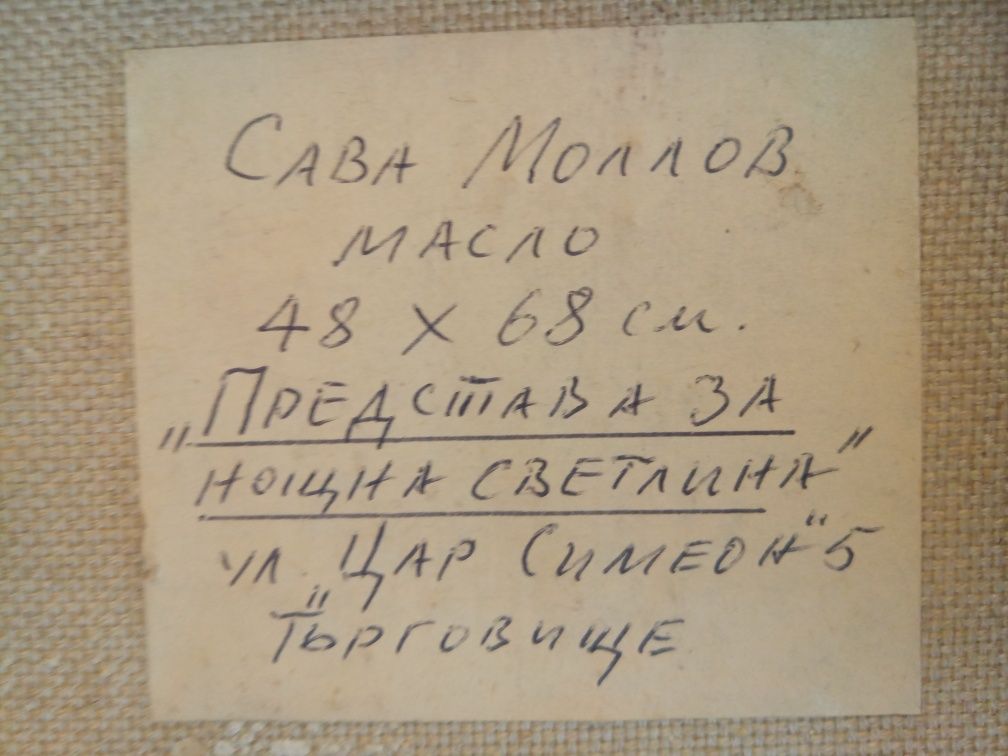 Сава Моллов
масло
48 х 68 см.
„Представа за
нощна светлина"
ул. „Цар Симеон" 5
Търговище